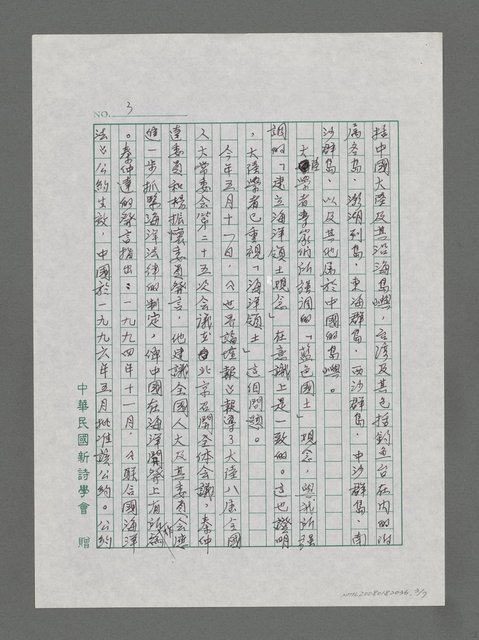 NO. 3
括中國大陸及其沿海島嶼，台灣及其包括釣魚台在內的附
屬各島，澎湖列島，東海群島，西沙群島，中沙群島，南
沙群島，以及其他屬於中國的島嶼。
大陸學者專家們所強調的「藍色國土」觀念，與我所強
調的「建立海洋領土觀念」在意識上是一致的。這也證明
，大陸學者已重視「海洋領土」這個問題。
今年五月十一日，《世界論壇報》報導了大陸八屆全國
人大常委會第二十五次會議在北京召開全體會議，秦仲
達委員和楊振懷委員發言，他建議全國人大及其委員會應
進一步抓緊海洋法律的制定，俾中國在海洋開發上有所
。秦仲達的發言指出：一九九四年十一月，《聯合國海洋
法》公約生效，中國於一九九六年五月批准該公約。公約
中華民國新詩學會 贈
NMTL20080182036, 3/7